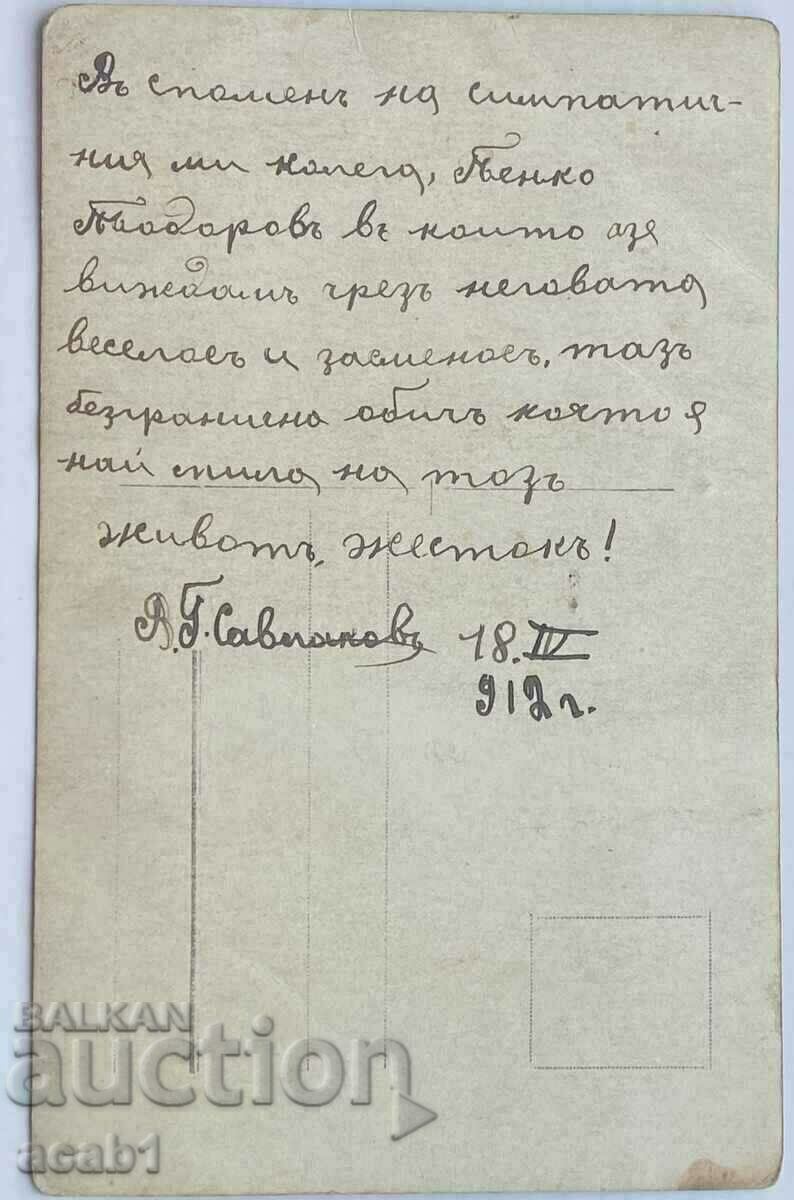 Въ споменъ на симпатич-
ния ми колега, Пенко
Тѣодоровъ въ който азъ
виждамъ чрезъ неговата
веселость и засменость, тазъ
безгранична обичъ която я
най мила на тозъ
животъ, жестокъ!
В. Г. 18. IV
912 г.
BALKAN
auction
acab1